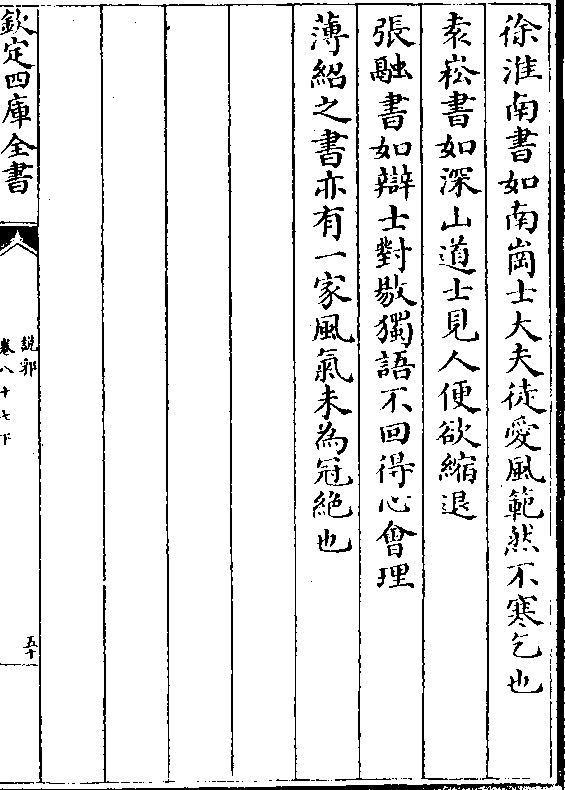 徐淮南書如南崗士大夫徒愛風範然不寒乞也
袁崧書如深山道士見人便欲縮退
張融書如辯士對敭獨語不回得心會理
薄紹之書亦有一家風氣未為冠絶也
欽定四庫全書
說郛
卷八十七下
五十